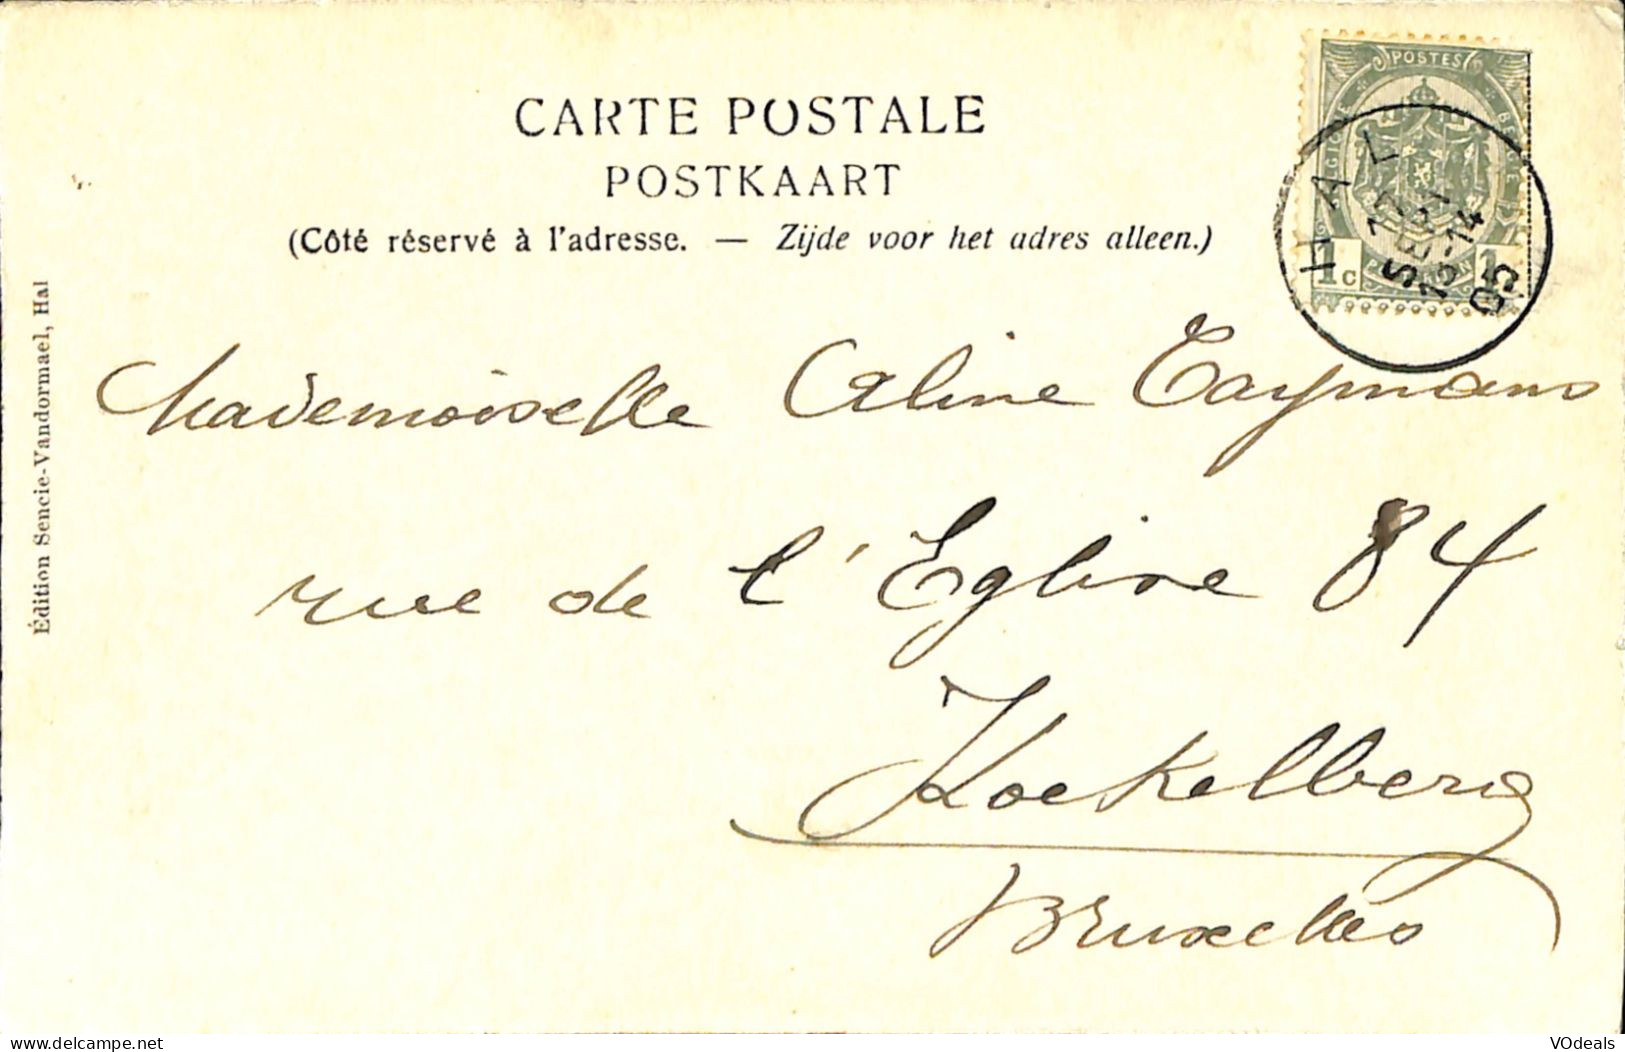 CARTE POSTALE
POSTKAART
(Côté réservé à l'adresse. — Zijde voor het adres alleen.)
POSTES
1c 1c
HAL
SEPT
13-14
05
Mademoiselle Aline Taymans
rue de l'Eglise 84
Koekelberg
Bruxelles
Édition Sencie-Vandormael, Hal
www.delcampe.net
VOdeals